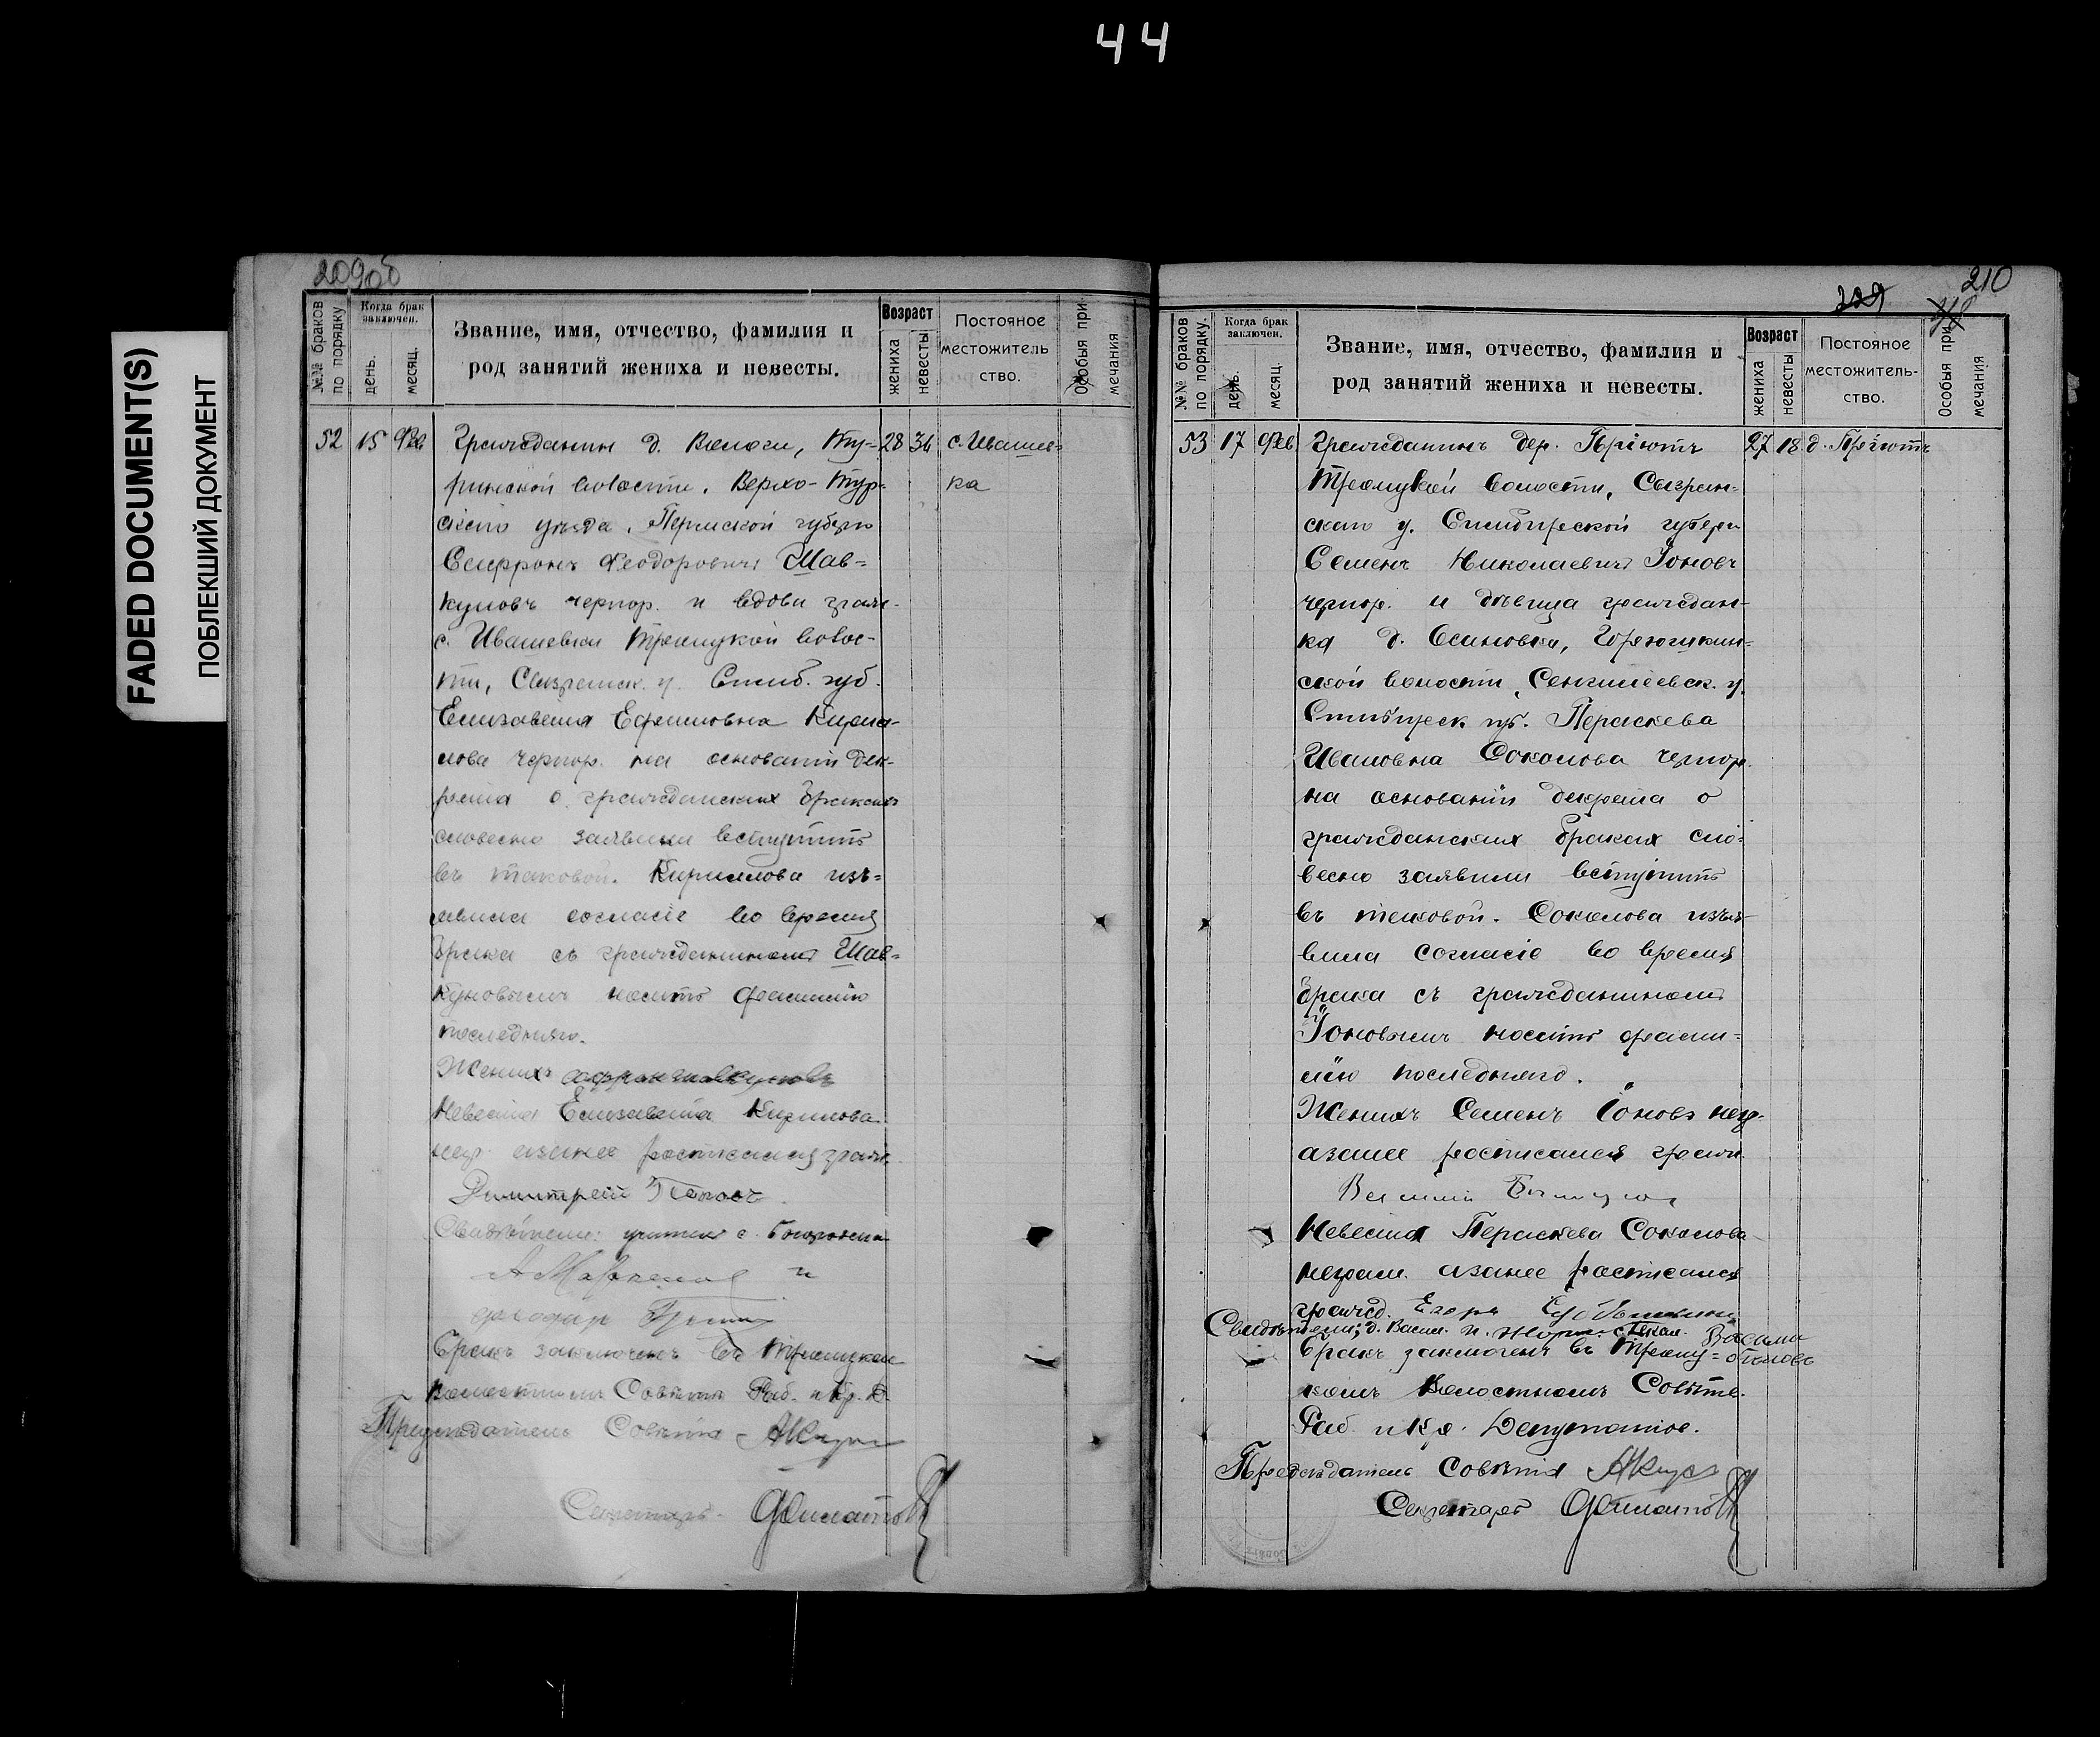 44
FADED DOCUMENT(S)
ПОБЛЕКШИЙ ДОКУМЕНТ
209об
№№ браков по порядку
Когда брак заключен.
день.
месяц.
Звание, имя, отчество, фамилия и
род занятий жениха и невесты.
Возраст
жениха
невесты
Постояное
местожитель
ство.
Особыя при-
мечания
52 15 Фев Гражданин д. Вологи, Ту- 28 34 с. Ивашев-
ринской волости, Верхо-Тур- ка
скаго уезда, Пермской губерн
Феодоровичъ Шав-
куновъ чернор. и вдова граж.
с. Ивашевки Троицкой волос-
ти, Сызранск. у. Симб. губ.
Елизавета Ефимовна Кирил-
лова чернор. на основании дек-
рета о гражданских браках
словесно заявили вступить
въ таковой. Кириллова изъ-
явила согласiе во время
брака съ гражданиномъ Шав-
куновымъ носить фамилiю
последняго.
Женихъ
Невеста Елизавета Кирилова
негр. а за нее росписался граж.
Димитрий
Свидѣтели: учитель с.
и
Бракъ заключенъ въ Троицком
волостномъ Совѣте Раб. и Кр. Д.
Председатель Совѣта
Секретарь Филатов
210
229
318
№№ браков по порядку.
Когда брак заключен.
день.
месяц.
Звание, имя, отчество, фамилия и
род занятий жениха и невесты.
Возраст
жениха
невесты
Постояное
местожитель-
ство.
Особыя при-
мечания
53 17 Фев Гражданинъ дер. Прiютъ 27 18 д. Прiютъ
Троицкой волости, Сызран-
скаго у. Симбирской губерн
Семенъ Николаевичъ Iоновъ
чернор. и дѣвица граждан-
ка д. Осиновки, Горюшкин-
ской волости, Сенгилеевск. у.
Симбирск губ. Параскева
Ивановна Соколова чернор.
на основанiи декрета о
гражданских браках сло-
весно заявили вступить
въ таковой. Соколова изъя-
вила согласiе во время
брака съ гражданиномъ
Iоновымъ носить фами-
лiю последняго.
Женихъ Семенъ Iоновъ негр.
а за нее росписался граж.
Невеста Параскева Соколова
неграм. а за нее росписался
гражд. Егоръ
Свидѣтели; д. Васил. и.
Бракъ заключенъ въ Троиц-
комъ Волостномъ Совѣте.
Раб. и Кр. Депутатов.
Председатель Совѣта
Секретарь Филатов